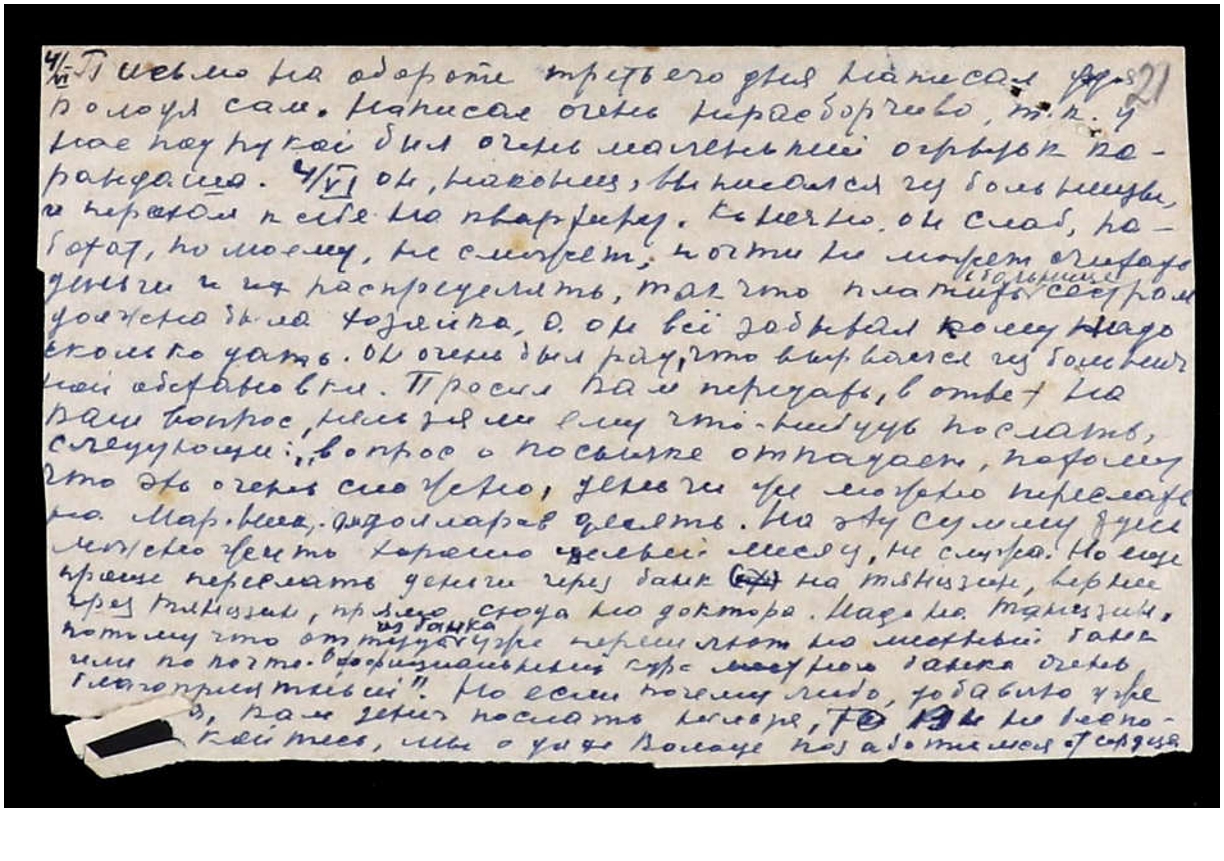 4/VI Письмо на обороте третьего дня написал дядя 21
Володя сам. Написал очень неразборчиво, т.к. у
нас под рукой был очень маленький огрызок ка-
рандаша. 4/VI он, наконец, выписался из больницы,
и переехал к себе на квартиру. Конечно, он слаб, ра-
ботат, по моему, не сможет, почти не может считать
деньги и их распределять, так что платить в больнице сестрам
должна была хозяйка, а он всё забывал кому надо
сколько дать. Он очень был рад, что вырвался из больнич
ной обстановки. Просил Вам передать, в ответ на
Ваш вопрос, нельзя ли ему что-нибудь послать,
следующее: "вопрос о посылке отпадает, потому
что это очень сложно, деньги же можно переслать
на Мар. Ник. долларов десять. На эту сумму здесь
можно жить хорошо целый месяц, не служа. Но еще
проще переслать деньги через банк на Тянцзин, вернее
через Тянцзин, прямо сюда на доктора. Надо на Тянцзин,
потому что оттуда из банка уже перешлют на местный банк
или по почте. Официальный курс местного банка очень
благоприятный". Но если почему либо, добавлю уже
я, Вам денег послать нельзя, то Вы не беспо-
койтесь, мы о дяде Володе позаботимся от сердца